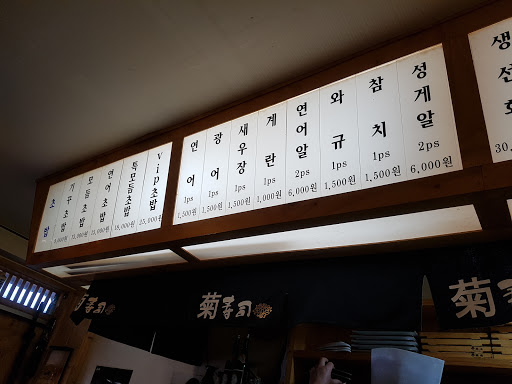 초밥
모듬초밥
연어초밥
특모듬초밥 18,000원
vip초밥 25,000원
연어 1ps 1,500원
광어 1ps 1,500원
새우장 1ps 1,500원
계란 1ps 1,000원
연어알 2ps 6,000원
와규 1ps 1,500원
참치 1ps 1,500원
성게알 2ps 6,000원
생선회
菊寿司
菊寿司
菊